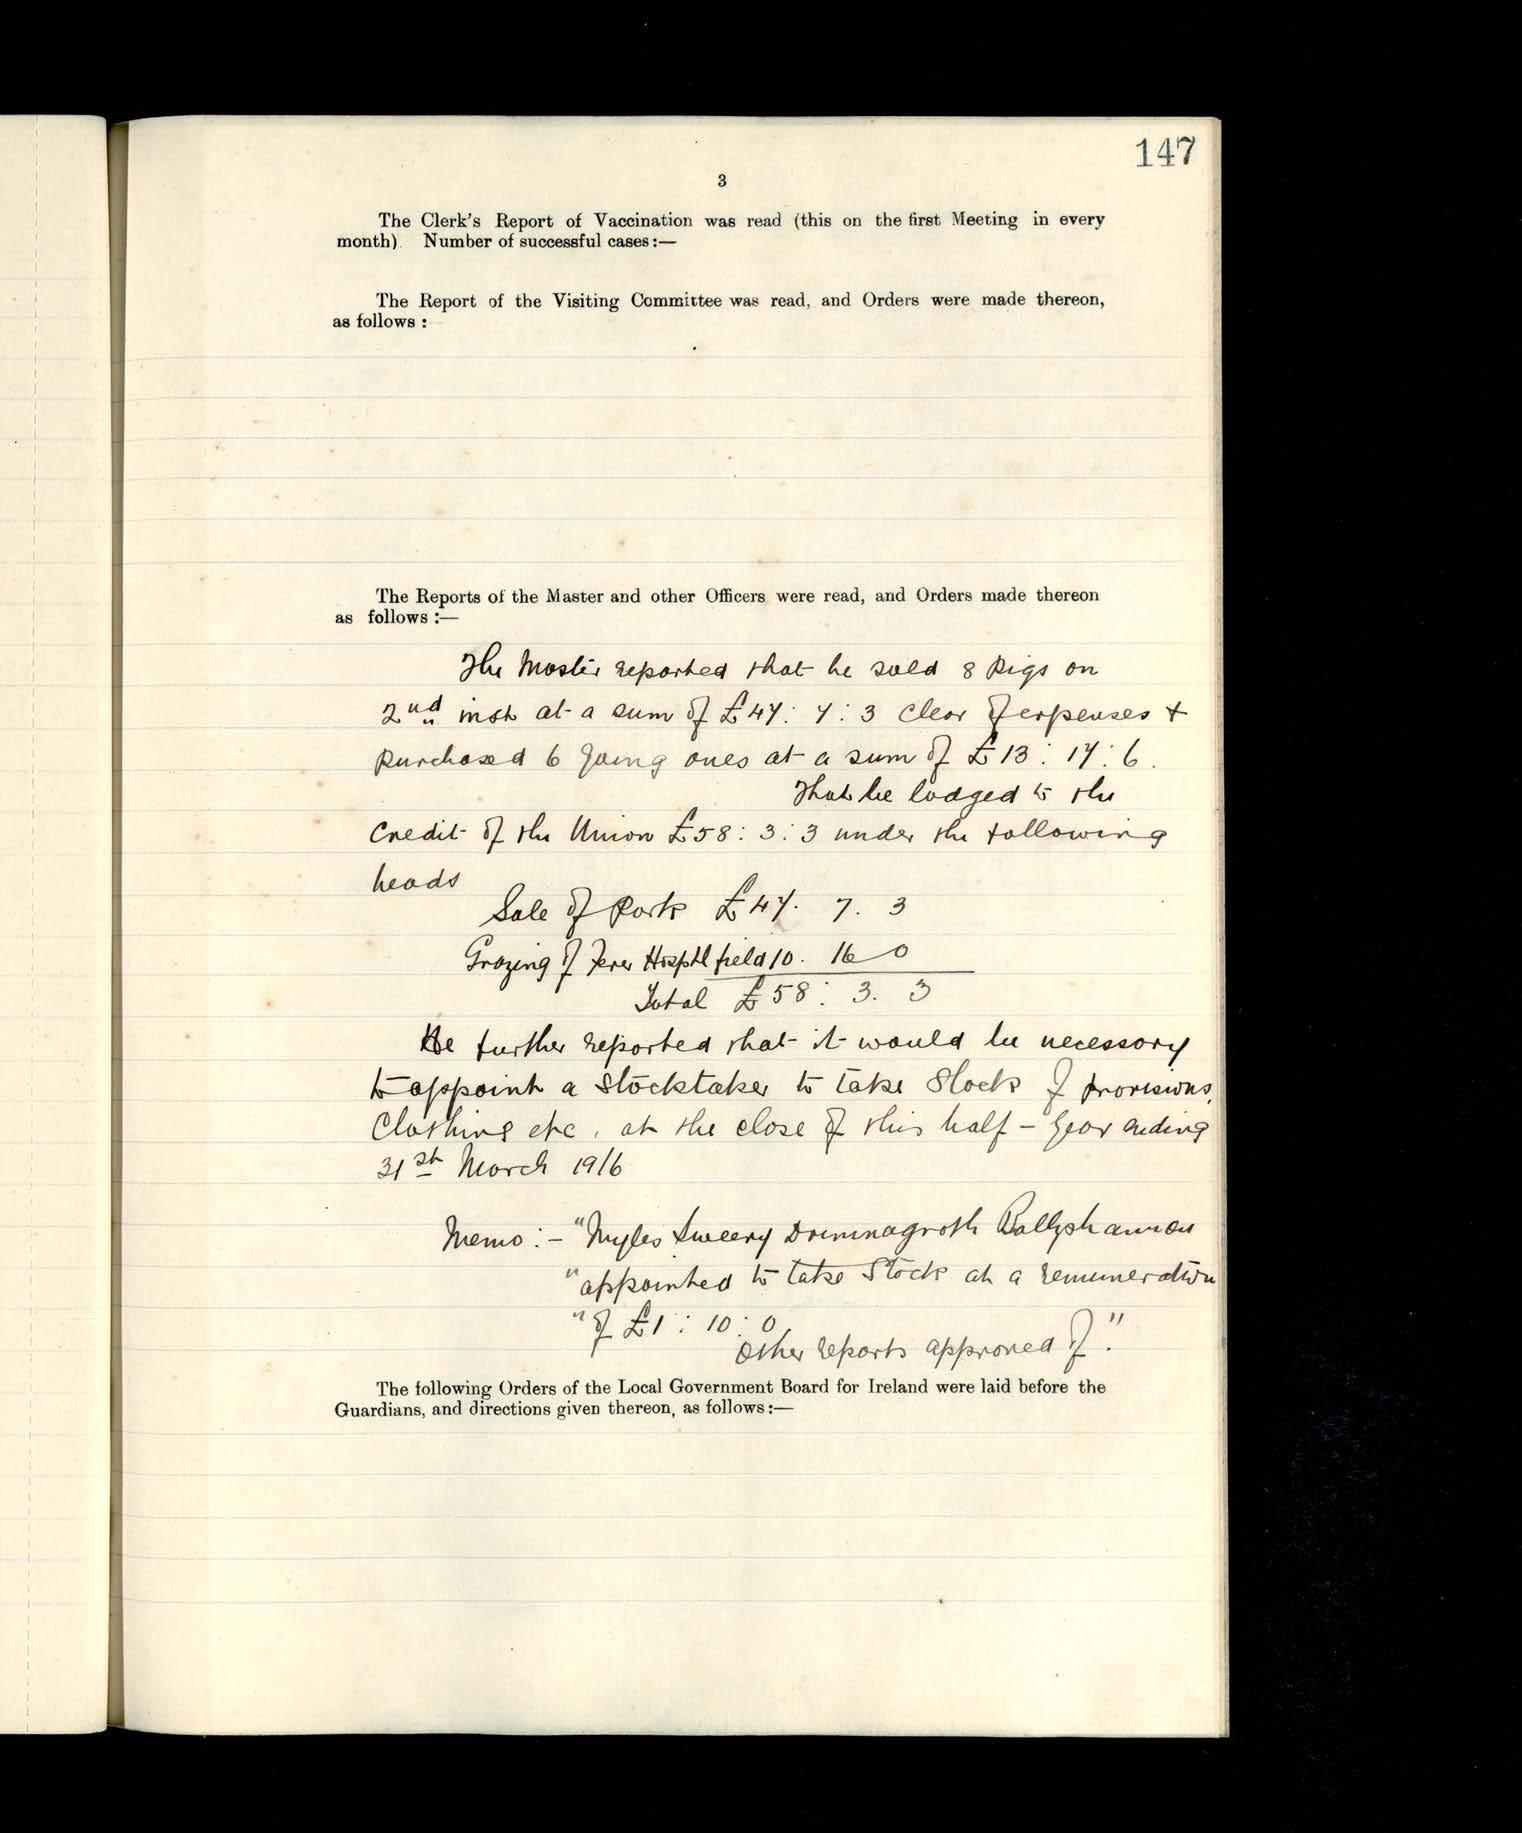 147
3
The Clerk's Report of Vaccination was read (this on the first Meeting in every
month). Number of successful cases:—
The Report of the Visiting Committee was read, and Orders were made thereon,
as follows :
The Reports of the Master and other Officers were read, and Orders made thereon
as follows :—
The Master reported that he sold 8 Pigs on
2nd inst at a sum of £47 : 7 : 3 clear of expenses +
purchased 6 young ones at a sum of £13 : 17 : 6.
That he lodged to the
Credit of the Union £58 : 3 : 3 under the following
heads
Sale of Pork £47. 7. 3
Grazing of Fever Hosptl field 10. 16 0
Total £58 : 3. 3
He further reported that it would be necessary
to appoint a Stocktaker to take Stock of provisions,
Clothing etc, at the close of this half-year ending
31st March 1916
Memo :- "Myles Sweeny Ballyshannon
"appointed to take Stock at a remuneration
"of £1 : 10 : 0
Other reports approved of."
The following Orders of the Local Government Board for Ireland were laid before the
Guardians, and directions given thereon, as follows:—